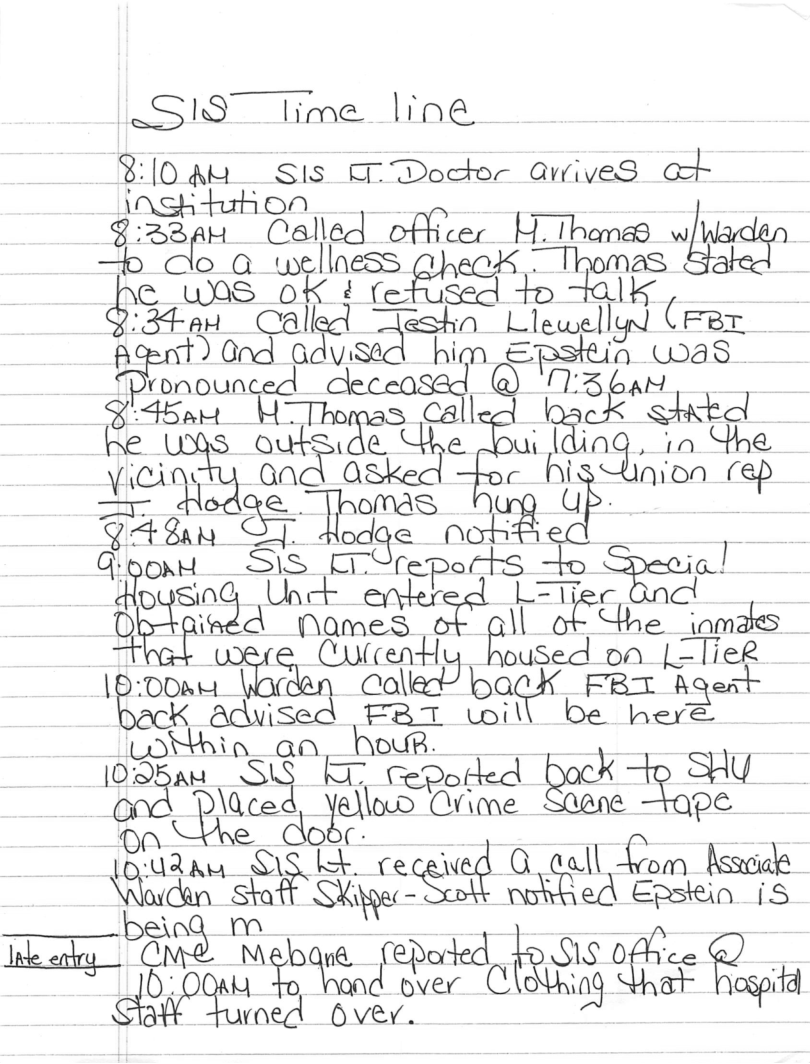 SIS Time line
8:10 AM SIS LT. Doctor arrives at
institution
8:33AM Called officer M. Thomas w/Warden
to do a wellness check. Thomas stated
he was ok & refused to talk
8:34AM Called Jestin Llewellyn (FBI
Agent) and advised him Epstein was
Pronounced deceased @ 7:36AM
8:45AM M. Thomas called back stated
he was outside the building, in the
vicinity and asked for his union rep
J. Hodge. Thomas hung up.
8:48AM J. Hodge notified
9:00AM SIS LT. reports to Special
Housing Unit entered L-Tier and
Obtained names of all of the inmates
that were currently housed on L-TieR
10:00AM Warden called back FBI Agent
back advised FBI will be here
within an houR.
10:25AM SIS LT. reported back to SHU
and placed yellow Crime Scene tape
on the door.
10:42AM SIS Lt. received a call from Associate
Warden staff Skipper-Scott notified Epstein is
being m
late entry CMC Mebane reported to SIS office @
10:00AM to hand over Clothing that hospital
Staff turned over.